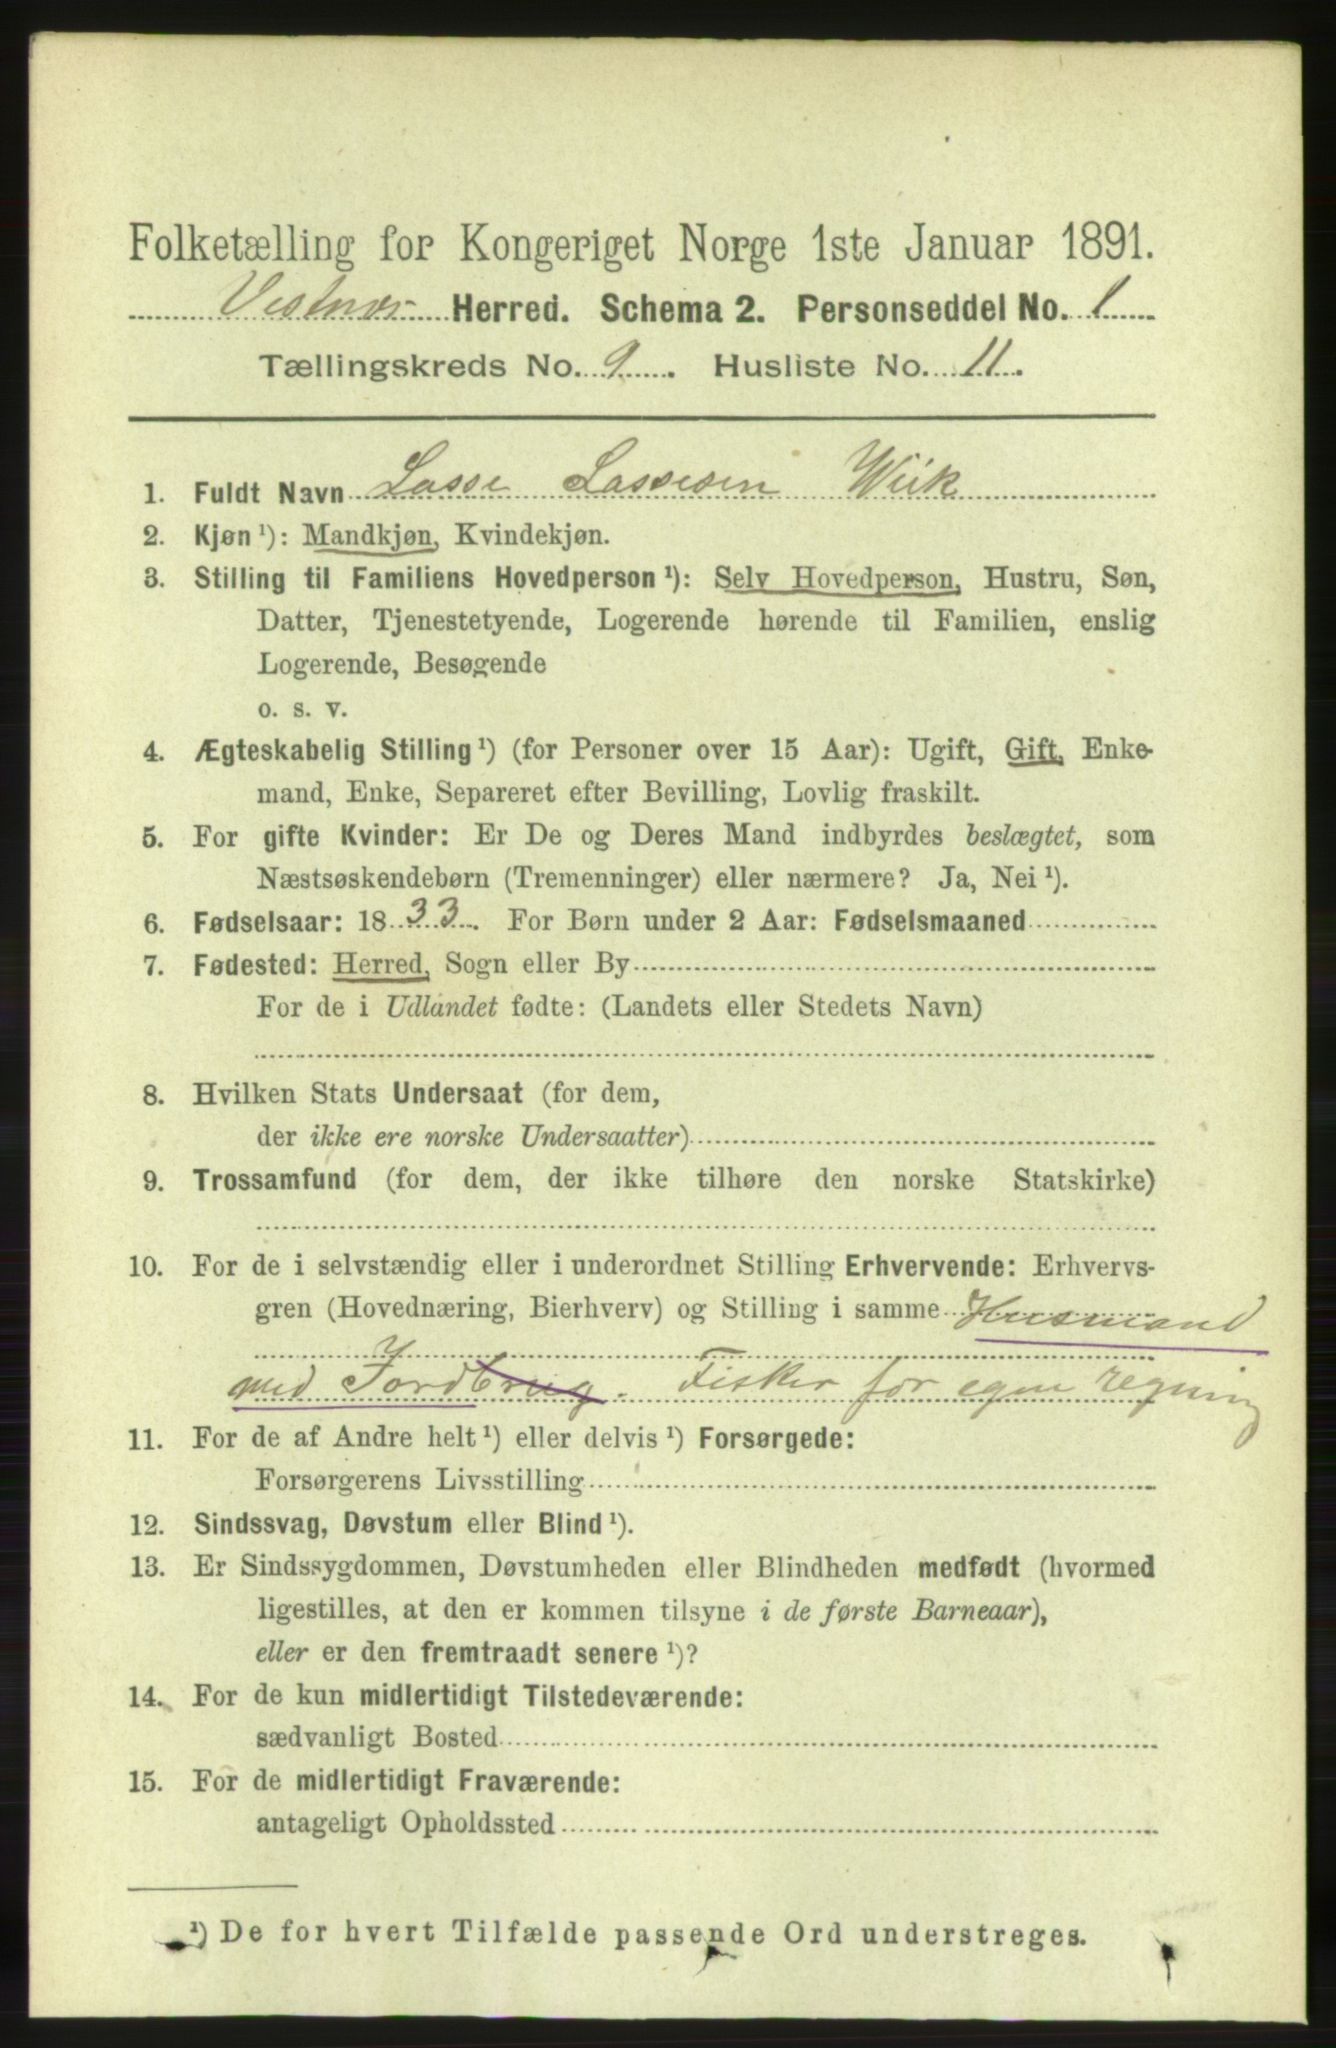 Folketælling for Kongeriget Norge 1ste Januar 1891.
Vestnæs Herred. Schema 2. Personseddel No. 1
Tællingskreds No. 9. Husliste No. 11.
1. Fuldt Navn Lasse Lassesen Wiik
2. Kjøn ¹): Mandkjøn, Kvindekjøn.
3. Stilling til Familiens Hovedperson ¹): Selv Hovedperson, Hustru, Søn,
Datter, Tjenestetyende, Logerende hørende til Familien, enslig
Logerende, Besøgende
o. s. v.
4. Ægteskabelig Stilling ¹) (for Personer over 15 Aar): Ugift, Gift, Enke-
mand, Enke, Separeret efter Bevilling, Lovlig fraskilt.
5. For gifte Kvinder: Er De og Deres Mand indbyrdes beslægtet, som
Næstsøskendebørn (Tremenninger) eller nærmere? Ja, Nei ¹).
6. Fødselsaar: 1833. For Børn under 2 Aar: Fødselsmaaned
7. Fødested: Herred, Sogn eller By
For de i Udlandet fødte: (Landets eller Stedets Navn)
8. Hvilken Stats Undersaat (for dem,
der ikke ere norske Undersaatter)
9. Trossamfund (for dem, der ikke tilhøre den norske Statskirke)
10. For de i selvstændig eller i underordnet Stilling Erhvervende: Erhvervs-
gren (Hovednæring, Bierhverv) og Stilling i samme Husmand
med Jordbrug. Fisker for egen regning
11. For de af Andre helt ¹) eller delvis ¹) Forsørgede:
Forsørgerens Livsstilling
12. Sindssvag, Døvstum eller Blind ¹).
13. Er Sindssygdommen, Døvstumheden eller Blindheden medfødt (hvormed
ligestilles, at den er kommen tilsyne i de første Barneaar),
eller er den fremtraadt senere ¹)?
14. For de kun midlertidigt Tilstedeværende:
sædvanligt Bosted
15. For de midlertidigt Fraværende:
antageligt Opholdssted
¹) De for hvert Tilfælde passende Ord understreges.